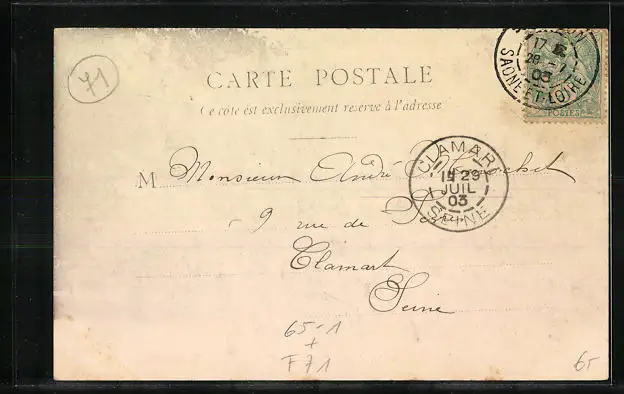 71
CARTE POSTALE
Ce côté est exclusivement réservé à l'adresse
17
28 -7
03
SAONE-ET-LOIRE
POSTES
CLAMART
15 29
JUIL
03
SEINE
M Monsieur André
9 rue de
Clamart
Seine
65-1
+
F71
65